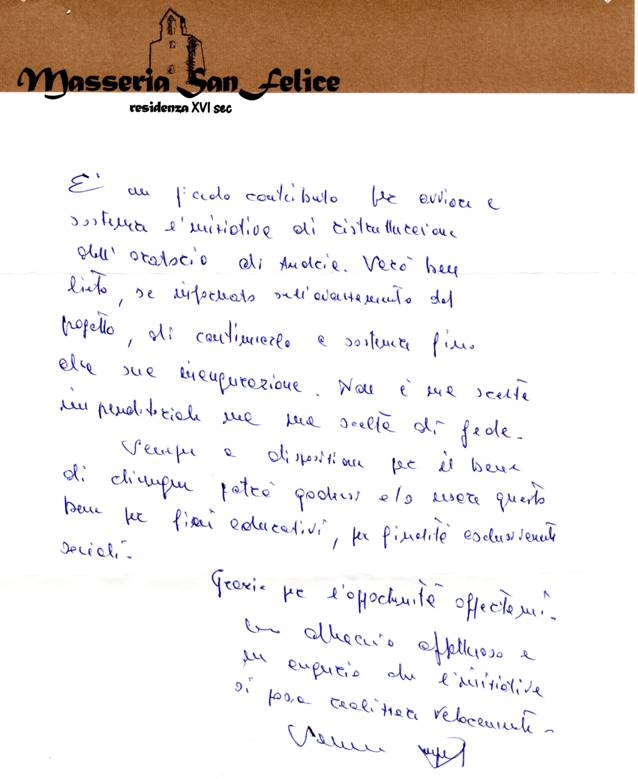 Masseria San Felice
residenza XVI sec
E' un piccolo contributo per avviare e
sostenere l'iniziativa di ristrutturazione
dell'oratorio di Andria. Sarò ben
lieto, se informato sull'avanzamento del
progetto, di continuare a sostenere fino
alla sua inaugurazione. Non è una scelta
imprenditoriale ma una scelta di fede.
Sempre a disposizione per il bene
di chiunque potrà godersi e/o usare questo
bene per fini educativi, per finalità esclusivamente
sociali.
Grazie per l'opportunità offertami.
Un abbraccio affettuoso e
un augurio che l'iniziativa
si possa realizzare velocemente.